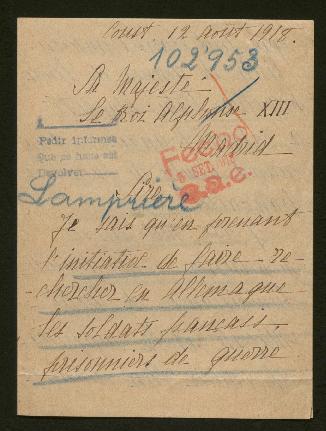 12 août 1918.
102'953
Sa Majesté
Le roi Alphonse XIII
Madrid
Pedir informes
Que se haga así
Devolver
Fecho
SET. 1918
Lamprière
Sire,
Je sais qu'en prenant
l'initiative de faire re-
-chercher en Allemagne
les soldats français,
prisonniers de guerre